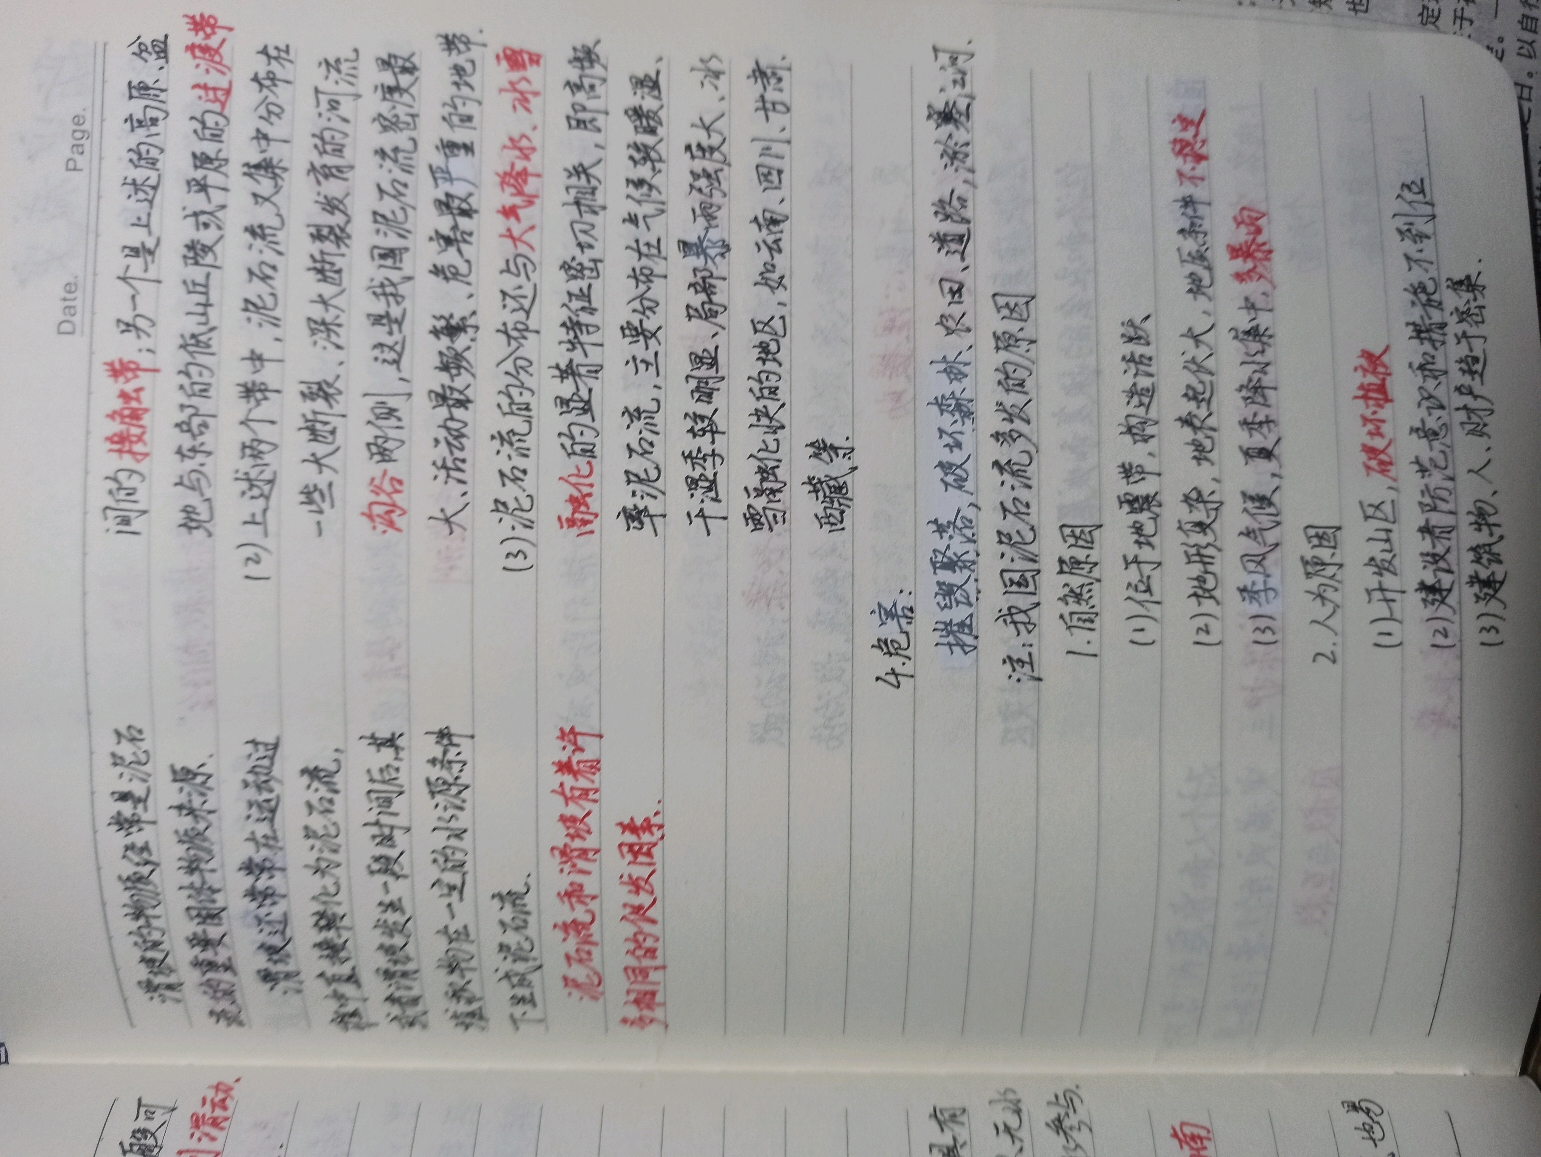 Date.
Page.
滑坡的物质经常是泥石
流的重要固体物质来源.
滑坡还常常在运动过
程中直接转化为泥石流,
或者滑坡发生一段时间后,其
堆积物在一定的水源条件
下生成泥石流.
泥石流和滑坡有着许
多相同的促发因素.
间的接触带;另一个是上述的高原、盆
地与东部的低山丘陵或平原的过渡带
(2)上述两个带中,泥石流又集中分布在
一些大断裂、深大断裂发育的河流
沟谷两侧,这是我国泥石流密度最
大、活动最频繁、危害最严重的地带.
(3)泥石流的分布还与大气降水、冰雪
融化的显著特征密切相关,即高频
率泥石流,主要分布在气候较暖湿、
干湿季较明显、局部暴雨强度大、冰
雪融化快的地区,如云南、四川、甘肃、
西藏等.
4.危害:
摧毁聚落,破坏森林、农田、道路,淤塞江河.
注:我国泥石流多发的原因
1.自然原因
(1)位于地震带,构造活跃
(2)地形复杂,地表起伏大,地质条件不稳定
(3)季风气候,夏季降水集中,多暴雨
2.人为原因
(1)开发山区,破坏植被
(2)建设者防范意识和措施不到位
(3)建筑物、人、财产趋于密集.